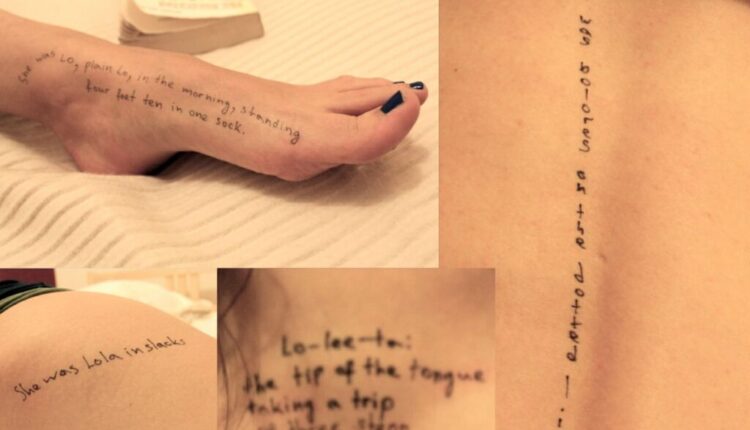 She was Lo, plain Lo, in the morning, standing
four feet ten in one sock.
as Dolores on the dotted
She was Lola in slacks
Lo-lee-ta:
the tip of the tongue
taking a trip
of three steps